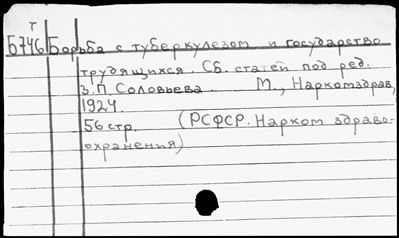 т
Б746 Борьба с туберкулезом и государство
трудящихся. Сб. статей под ред.
З.П. Соловьева. М., Наркомздрав,
1924
56 стр. (РСФСР. Нарком здраво-
охранения)